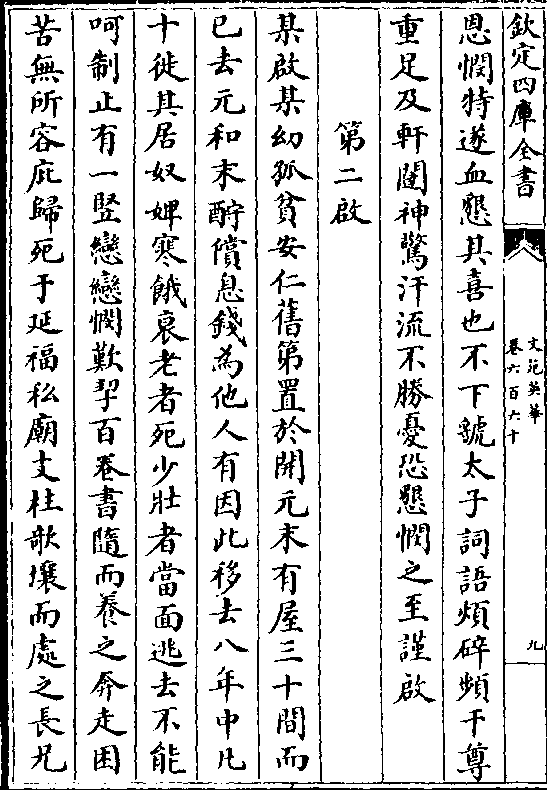 欽定四庫全書
文苑英華
卷六百六十
九
恩憫特遂血懇其喜也不下虢太子詞語煩碎頻干尊
重足及軒闥神驚汗流不勝憂恐懇憫之至謹啟
第二啟
某啟某幼孤貧安仁舊第置於開元末有屋三十間而
已去元和末酧償息錢為他人有因此移去八年中凡
十徙其居奴婢寒餓衰老者死少壯者當面逃去不能
呵制止有一竪戀戀憫歎挈百卷書隨而養之奔走困
苦無所容庇歸死于延福私廟支柱欹壞而處之長兄